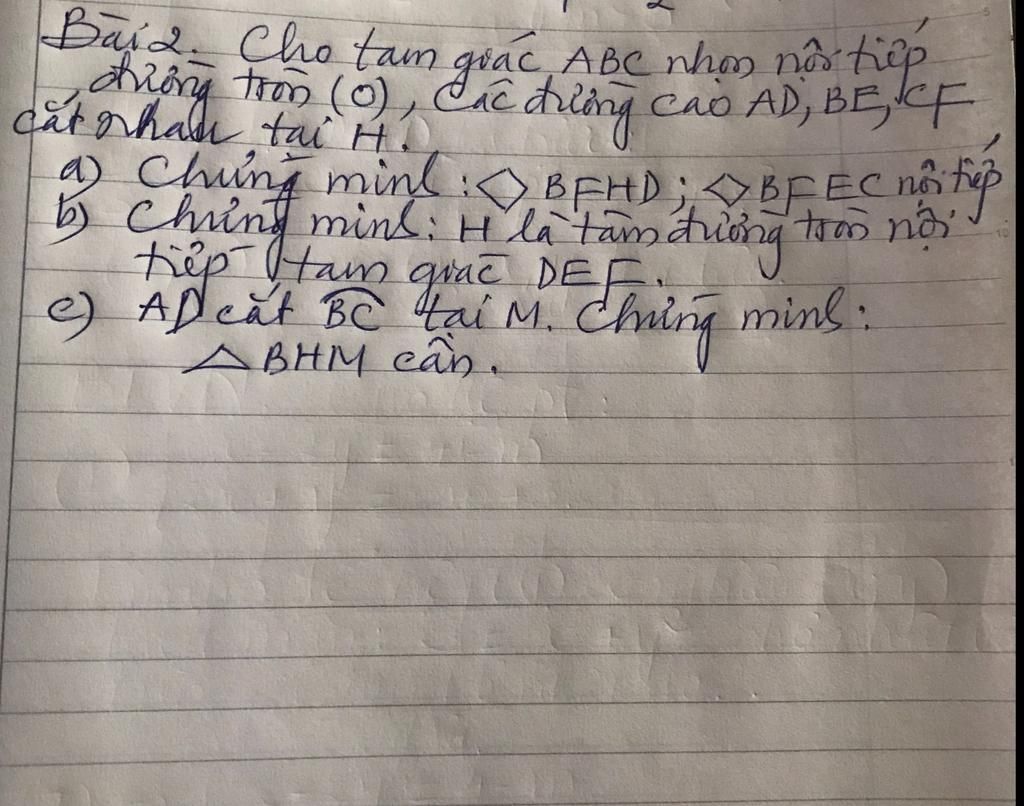 Bài 2. Cho tam giác ABC nhọn nội tiếp
đường tròn (O), Các đường cao AD, BE, CF
cắt nhau tại H.
a) Chứng minh: ◇ BFHD; ◇ BFEC nội tiếp
b) Chứng minh: H là tâm đường tròn nội
tiếp tam giác DEF.
c) AD cắt BC tại M. Chứng minh:
△ BHM cân.